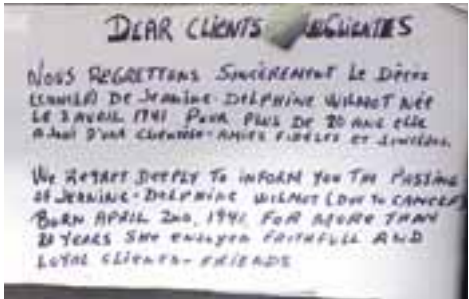 DEAR CLIENTS
NOUS REGRETTONS SINCÈREMENT LE DÉCÈS
DE JEANINE-DELPHINE WILMOT NÉE
LE 2 AVRIL 1941 POUR PLUS DE 20 ANS ELLE
D'UNE CLIENTÈLE-AMIES FIDÈLES ET
WE REGRET DEEPLY TO INFORM YOU THE PASSING
OF JEANINE-DELPHINE WILMOT (DUE TO CANCER)
BORN APRIL 2ND, 1941, FOR MORE THAN
20 YEARS SHE ENJOYED FAITHFULL AND
LOYAL CLIENTS-FRIENDS